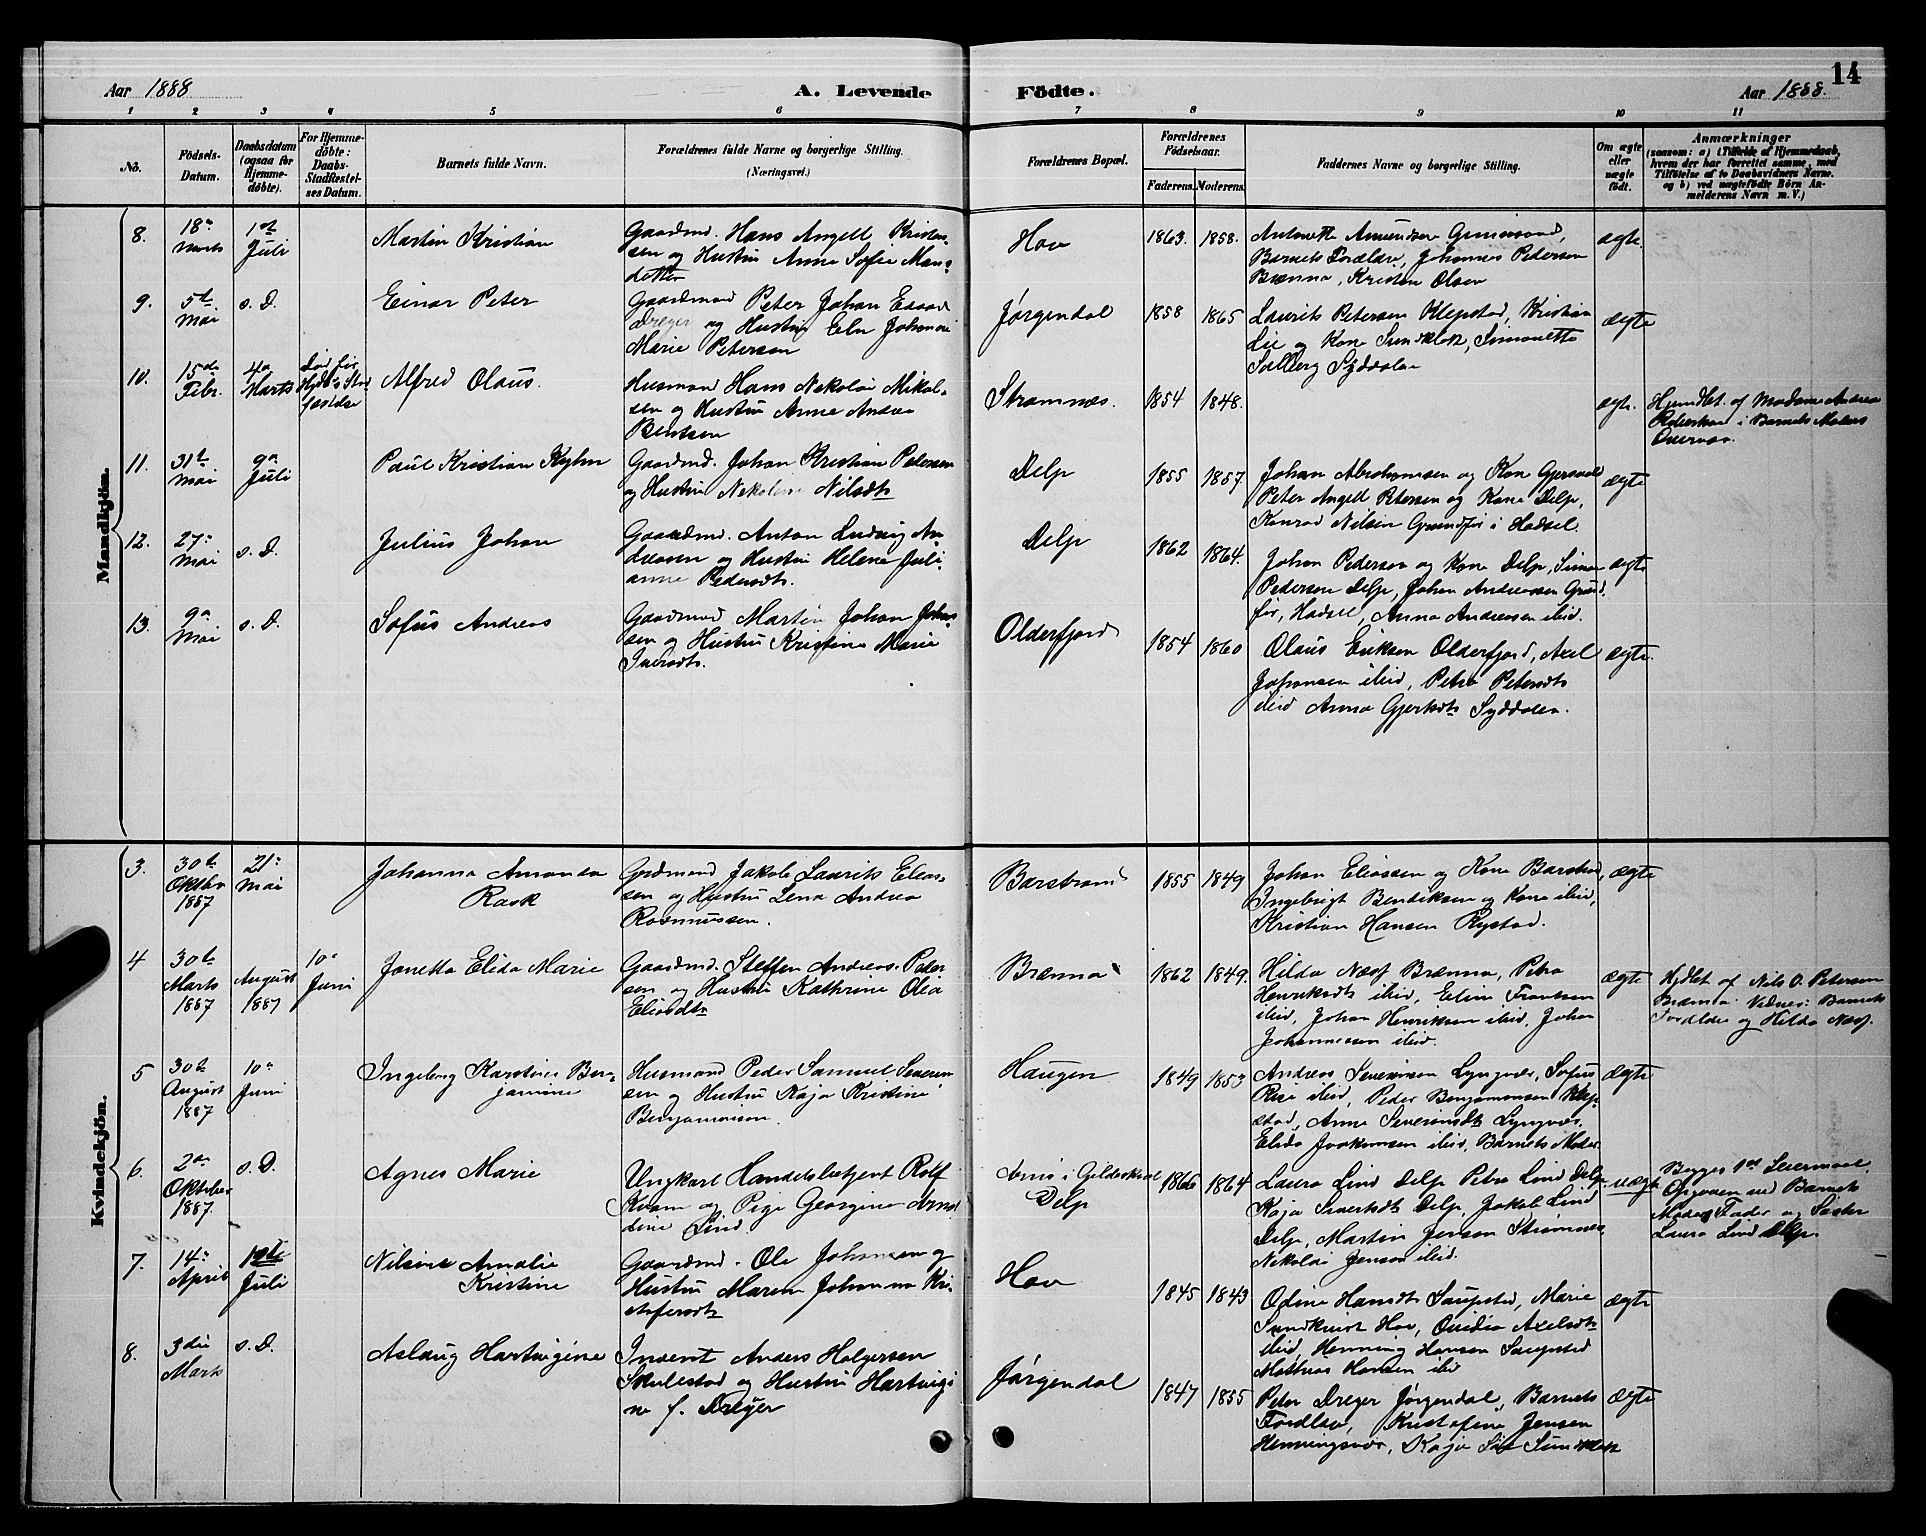 14
Aar 1888
A. Levende
Födte.
Aar 1888.
1 2 3 4 5 6 7 8 9 10 11
No.
Födsels-
Datum.
Daabsdatum
(ogsaa for
Hjemme-
döbte).
For Hjemme-
döbte:
Daabs-
Stadfæstel-
ses Datum.
Barnets fulde Navn.
Forældrenes fulde Navne og borgerlige Stilling.
(Næringsvei.)
Forældrenes Bopæl.
Forældrenes
Födselsaar.
Faderens. Moderens.
Faddernes Navne og borgerlige Stilling.
Om ægte
eller
uægte
födt.
Anmærkninger
(saasom: a) i Tilfælde af Hjemmedaab,
hvem der har forrettet samme, med
Tilföielse af to Daabsvidners Navne.
og b) ved uægtefödte Börn An-
melderens Navn m. V.)
Mandkjön.
8.
18de
Marts
1ste
Juli
Martin Kristian
Gaardmd. Hans Angell Kristen-
sen og Hustru Anna Sofie Mans-
dotter
Hov
1863. 1858.
Antonette Amundsen Gimsand,
Barnets Forældre, Johannes Pedersen
Brenna, Kristen Olsen
ægte.
9.
5te
Mai
s. D.
Einar Peter
Gaardmand Peter Johan Esaas
Dreyer og Hustru Eln Johanna
Marie Petersen
Jørgendal
1858 1865
Laurits Petersen Klepstad, Kristian
Lie og Kone Sundklak, Simonette
Solberg Syddalen
ægte
10.
15de
Febr.
4de
Marts
Død før
Alfred Olaus.
Husmand Hans Nekolai Mikal-
sen og Hustru Anne Andrea
Bentsen
Strømnæs.
1854 1848.
ægte.
Hjemdbt. af Madame Andrea
Pedersen i Barnets Moders
11.
31te
Mai
9de
Juli
Paul Kristian Kyhn
Gaardmd. Johan Kristian Pedersen
og Hustru Nekoline Nilsdtr
Delp
1855 1857
Johan Abrahamsen og Kone Gjersvold
Peter Angell Petersen og Kone Delp,
Konrad Nilsen Grundfør i Hadsel.
ægte
12.
27de
Mai
s. D.
Julius Johan
Gaardmd. Anton Ludvig An-
dreasen og Hustru Helene Juli-
anne Pedersdtr.
Delp
1862 1864.
Johan Pederson og Kone Delp, Simon
Pedersen Delp, Johan Andreassen Grund-
før, Hadsel, Anna Andreassen ibid.
ægte
13.
9de
Mai
s. D.
Sofus Andreas
Gaardmand Martin Johan Johan-
sen og Hustru Kristine Marie
Iversdtr.
Olderfjord
1854 1860
Olaus Eriksen Olderfjord, Axel
Johansen ibid, Petra Petersdtr
ibid Anna Gjertsdtr Syddalen.
ægte.
Kvindekjön.
3.
30te
Oktbr
1887
21de
Mai
Johanna Amanda
Rask
Grdmand Jakob Laurits Elias-
sen og Hustru Lena Andrea
Rasmussen.
Barstrand
1855 1849
Johan Eliassen og Kone Barstrand,
Ingebrigt Bendiksen og Kone ibid,
Kristian Hansen Rystad.
ægte
4
30te
Marts
1887
August
1887
10de
Juni
Janetta Elida Marie
Gaardmd. Steffen Andreas Peder-
sen og Hustru Kathrine Olea
Eliasdtr
Brenna
1862 1849.
Hilda Næss Brenna, Petra
Henriksdtr ibid, Eline Frantsen
ibid, Johan Henriksen ibid, Johan
Johannessen ibid.
ægte
Hjdbt af Nils O. Petersen
Brenna. Vidner: Barnets
Forældre og Hilda Næss.
5
30te
August
1887
10de
Juni
Ingeborg Karstine Ben-
jamine
Husmand Peder Samuel Severin-
sen og Hustru Kaja Kristine
Benjaminsen
Haugen
1849 1853
Andreas Severinsen Lyngvær, Sofus
Risø ibid, Peder Benjaminsen Klep-
stad, Anne Severinsdt Lyngvær,
Elida Joakimsen ibid, Barnets Moder
ægte
6.
2den
Oktober
1887
s. D.
Agnes Marie
Ungkarl Handelsbetjent Rolf
Kvam og Pige Georgine Arno-
dine Lind
Arnø i Gildeskaal
Delp
1866 1864
Laura Lind Delp Petra Lind Delp
Kaja Sivertsdt Delp, Jakob Lind
Delp, Martin Jensen Strømnæs
Nikolai Jensen ibid.
uægte
Begges 1ste Leiermaal
Opgiven ved Barnets
Moders Fader og Søster
Laura Lind Delp.
7.
14de
April
1ste
Juli
Nilsine Amalie
Kristine
Gaardmd. Ole Johansen og
Hustru Maren Johanna Kri-
stofersdtr
Hov
1845 1843
Odine Hansdt Saupstad, Marie
Sundkvist Hov, Ovidia Axelsdtr
ibid, Henning Hansen Saupstad
Mathias Hansen ibid
ægte
8.
3die
Marts
s. D.
Aslaug Hartvigine
Inderst Anders Holgersen
Skulestad og Hustru Hartvigi-
ne f. Dreyer
Jørgendal
1847 1855
Peter Dreyer Jørgendal, Barnets
Forældre, Kristofine Jensen
Henningsvær, Kaja Lie Sundklak
ægte